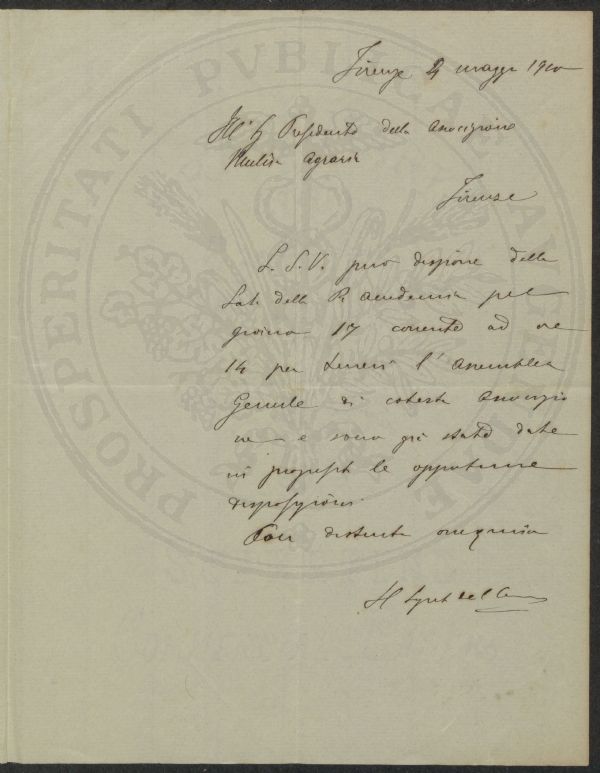 PROSPERITATI PVBLICAE AV
Firenze 4 maggio 1910
Ill. Sig Presidente della Associazione
Agraria
Firenze
L. S. V. può disporre della
Sala della R. Accademia pel
giorno 17 corrente ad ore
14 per tenervi l'Assemblea
Generale di cotesta Associazio
ne e sono già state date
in proposito le opportune
disposizioni.
Con distinta ossequio
Il